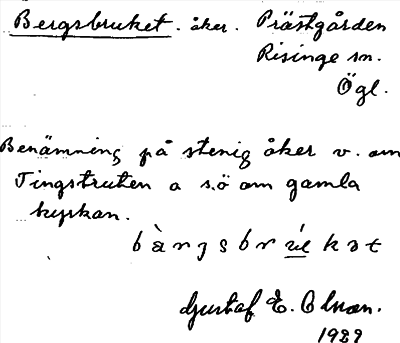 Bergsbruket. åker. Prästgården
Risinge sn.
Ögl.
Benämning på stenig åker v. om
Tingstruten o s.ö om gamla
kyrkan.
Gustaf E. Olsson.
1929